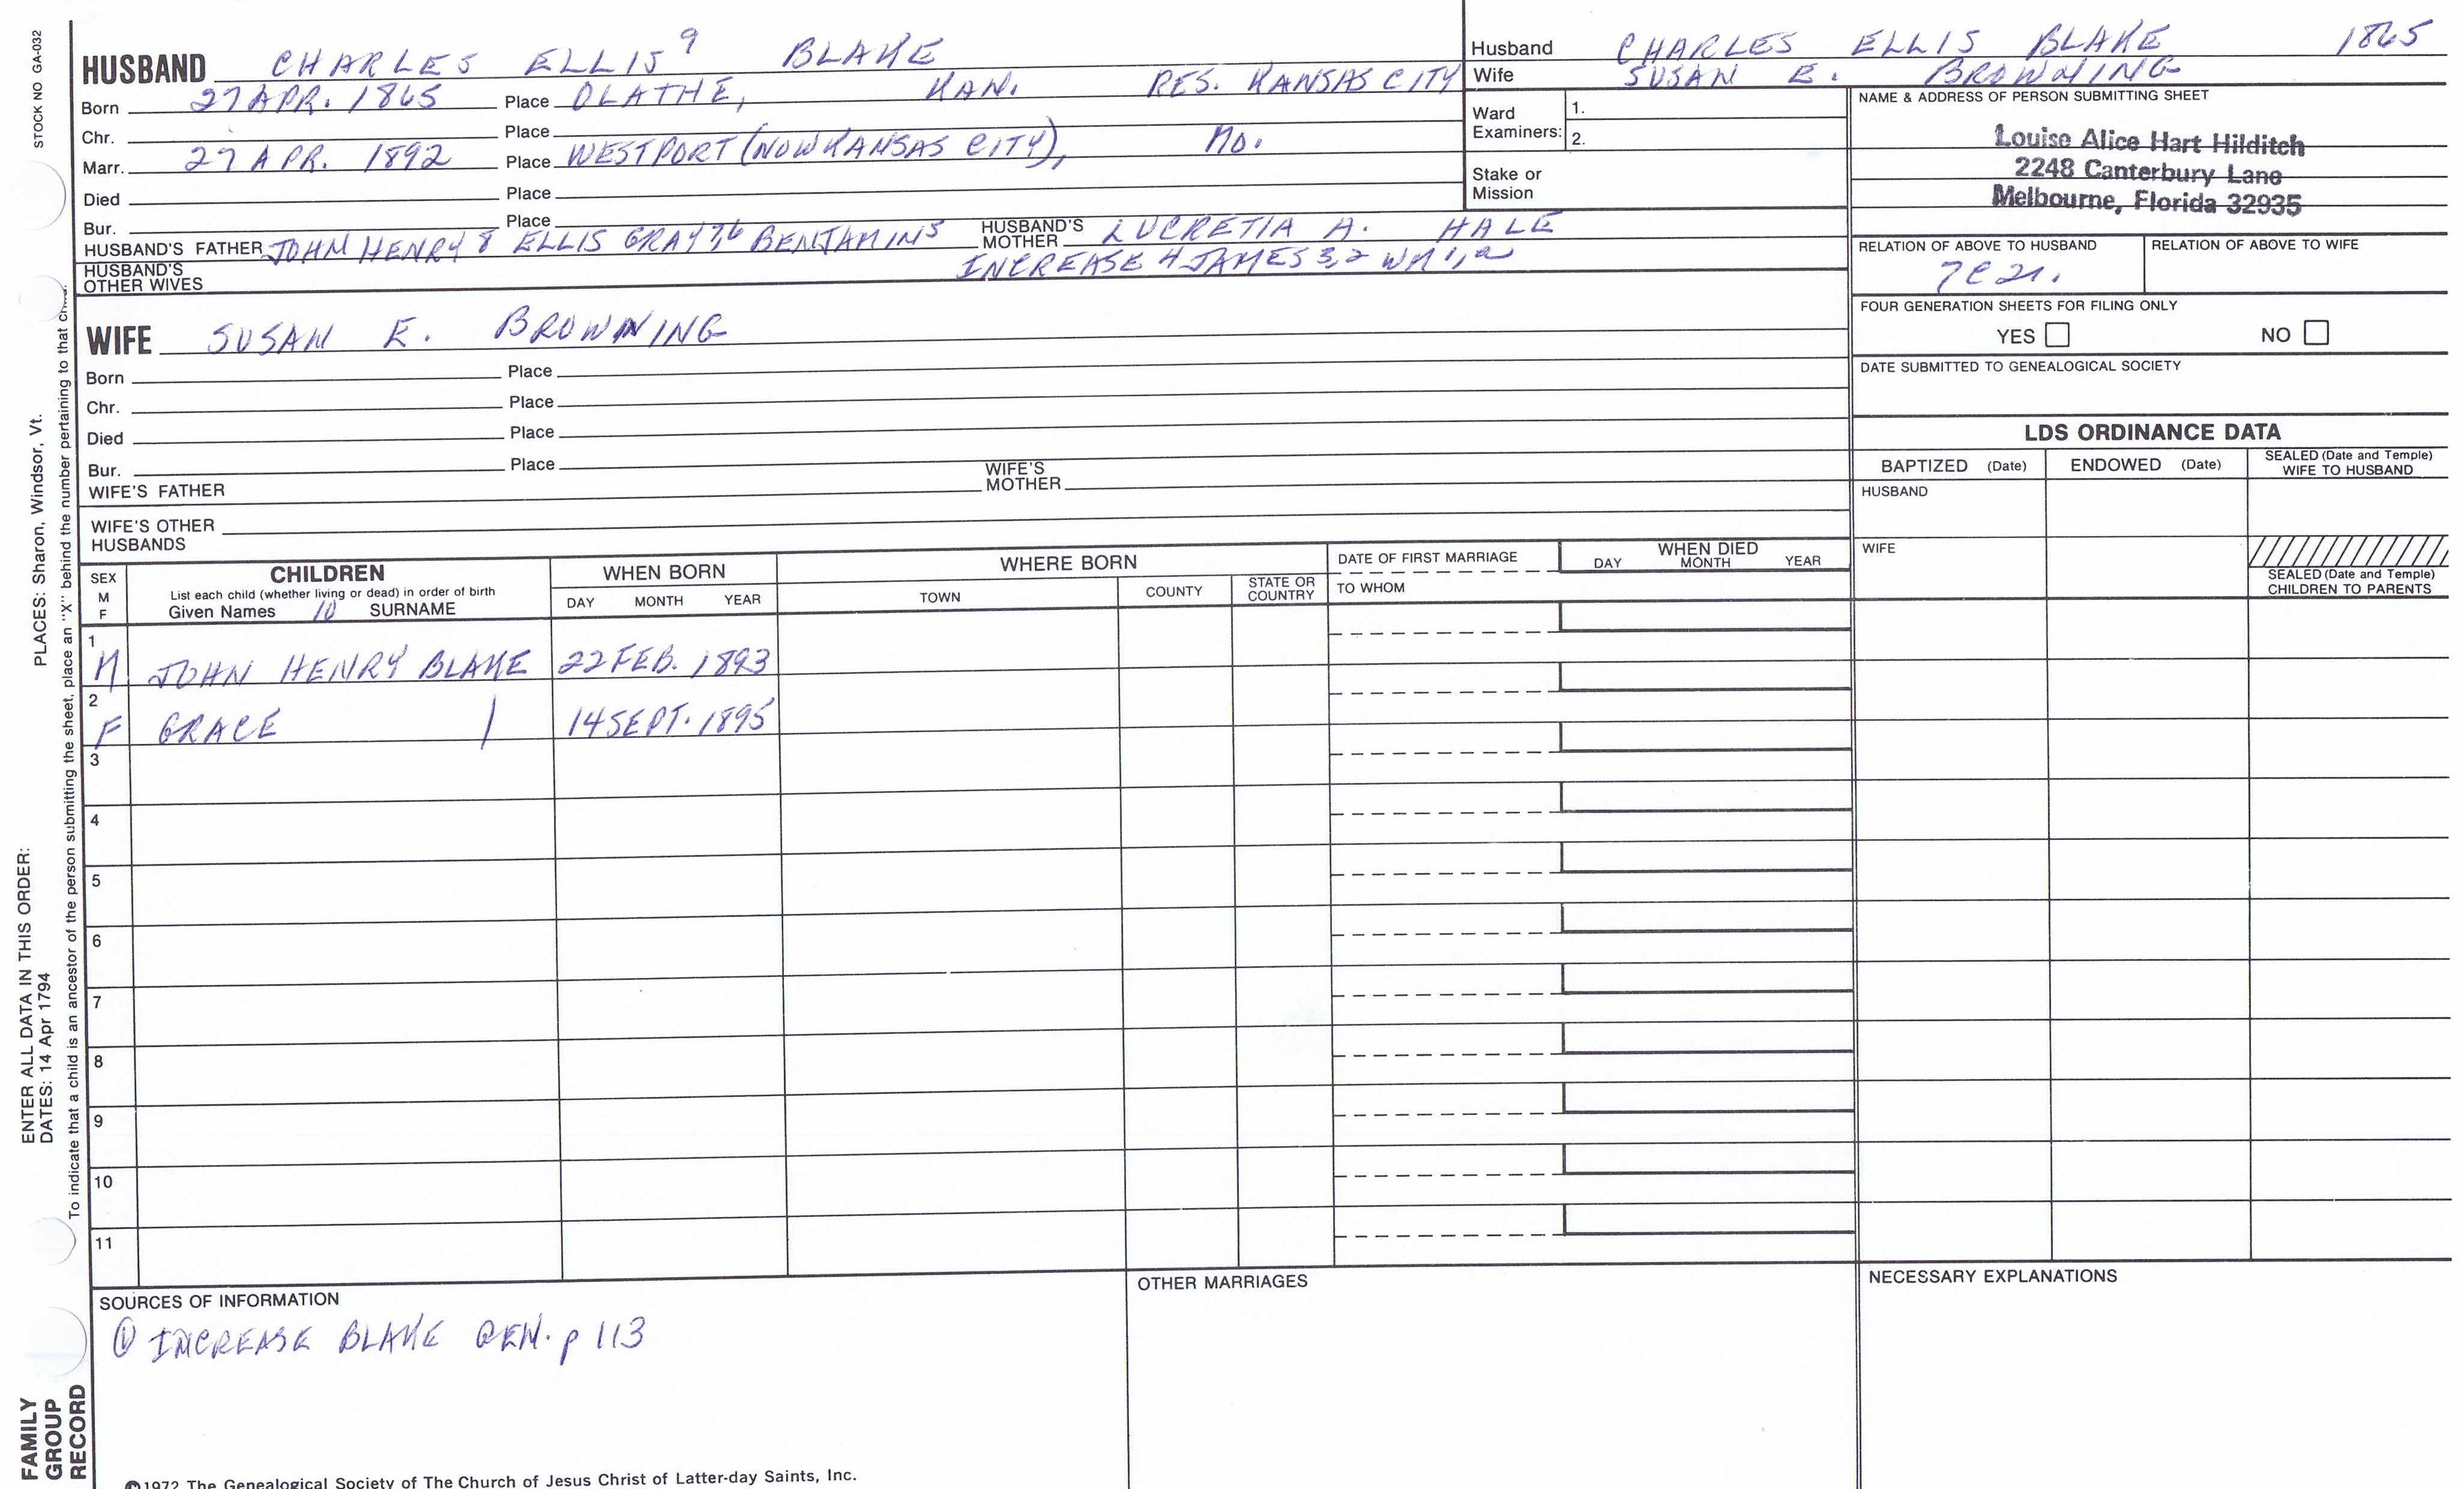 STOCK NO GA-032
PLACES: Sharon, Windsor, Vt.
ENTER ALL DATA IN THIS ORDER:
DATES: 14 Apr 1794
To indicate that a child is an ancestor of the person submitting the sheet, place an "X" behind the number pertaining to that
FAMILY
GROUP
RECORD
HUSBAND CHARLES ELLIS 9 BLAKE
Born 27 APR. 1865 Place OLATHE, KAN. RES. KANSAS CITY
Chr. Place
Marr. 27 APR. 1892 Place WESTPORT (NOW KANSAS CITY), MO.
Died Place
Bur. Place
HUSBAND'S FATHER JOHN HENRY 8 ELLIS GRAY 7,6 BENJAMIN 5 HUSBAND'S MOTHER LUCRETIA A. HALE
HUSBAND'S OTHER WIVES INCREASE 4 JAMES 3,2 WM 1,
WIFE SUSAN E. BROWNING
Born Place
Chr. Place
Died Place
Bur. Place
WIFE'S FATHER WIFE'S MOTHER
WIFE'S OTHER HUSBANDS
Husband CHARLES ELLIS BLAKE 1865
Wife SUSAN E. BROWNING
Ward Examiners: 1.
2.
Stake or Mission
NAME & ADDRESS OF PERSON SUBMITTING SHEET
Louise Alice Hart Hilditch
2248 Canterbury Lane
Melbourne, Florida 32935
RELATION OF ABOVE TO HUSBAND RELATION OF ABOVE TO WIFE
7C2r.
FOUR GENERATION SHEETS FOR FILING ONLY
YES NO
DATE SUBMITTED TO GENEALOGICAL SOCIETY
LDS ORDINANCE DATA
BAPTIZED (Date) ENDOWED (Date) SEALED (Date and Temple) WIFE TO HUSBAND
HUSBAND
WIFE
SEALED (Date and Temple) CHILDREN TO PARENTS
SEX M F
CHILDREN
List each child (whether living or dead) in order of birth
Given Names 10 SURNAME
WHEN BORN
DAY MONTH YEAR
WHERE BORN
TOWN COUNTY STATE OR COUNTRY
DATE OF FIRST MARRIAGE
TO WHOM
WHEN DIED
DAY MONTH YEAR
1 M JOHN HENRY BLAKE 22 FEB. 1893
2 F GRACE | 14 SEPT. 1895
3
4
5
6
7
8
9
10
11
SOURCES OF INFORMATION
① INCREASE BLAKE GEN. p 113
OTHER MARRIAGES
NECESSARY EXPLANATIONS
©1972 The Genealogical Society of The Church of Jesus Christ of Latter-day Saints, Inc.